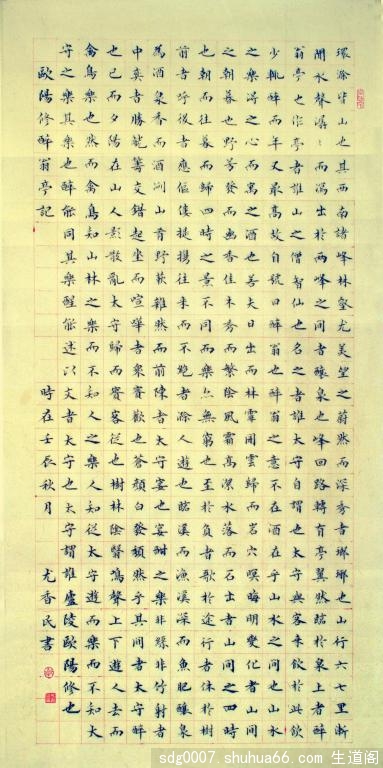 環滁皆山也其西南諸峰林壑尤美望之蔚然而深秀者瑯琊也山行六七里漸
聞水聲潺〻而瀉出於兩峰之間者釀泉也峰回路轉有亭翼然臨於泉上者醉
翁亭也作亭者誰山之僧智仙也名之者誰太守自謂也太守與客來飲於此飲
少輒醉而年又最高故自號曰醉翁也醉翁之意不在酒在乎山水之間也山水
之樂得之心而寓之酒也若夫日出而林霏開雲歸而岩穴暝晦明變化者山間
之朝暮也野芳發而幽香佳木秀而繁陰風霜高潔水落而石出者山間之四時
也朝而往暮而歸四時之景不同而樂亦無窮也至於負者歌於途行者休於樹
前者呼後者應傴僂提攜往來而不絕者滁人遊也臨溪而漁溪深而魚肥釀泉
為酒泉香而酒洌山肴野蔌雜然而前陳者太守宴也宴酣之樂非絲非竹射者
中弈者勝觥籌交錯起坐而喧嘩者眾賓歡也蒼顏白發頹然乎其間者太守醉
也已而夕陽在山人影散亂太守歸而賓客從也樹林陰翳鳴聲上下遊人去而
禽鳥樂也然而禽鳥知山林之樂而不知人之樂人知從太守遊而樂而不知太
守之樂其樂也醉能同其樂醒能述以文者太守也太守謂誰廬陵歐陽修也
歐陽修醉翁亭記
時在壬辰秋月 尤香民書
sdg0007.shuhua66.com 生道阁